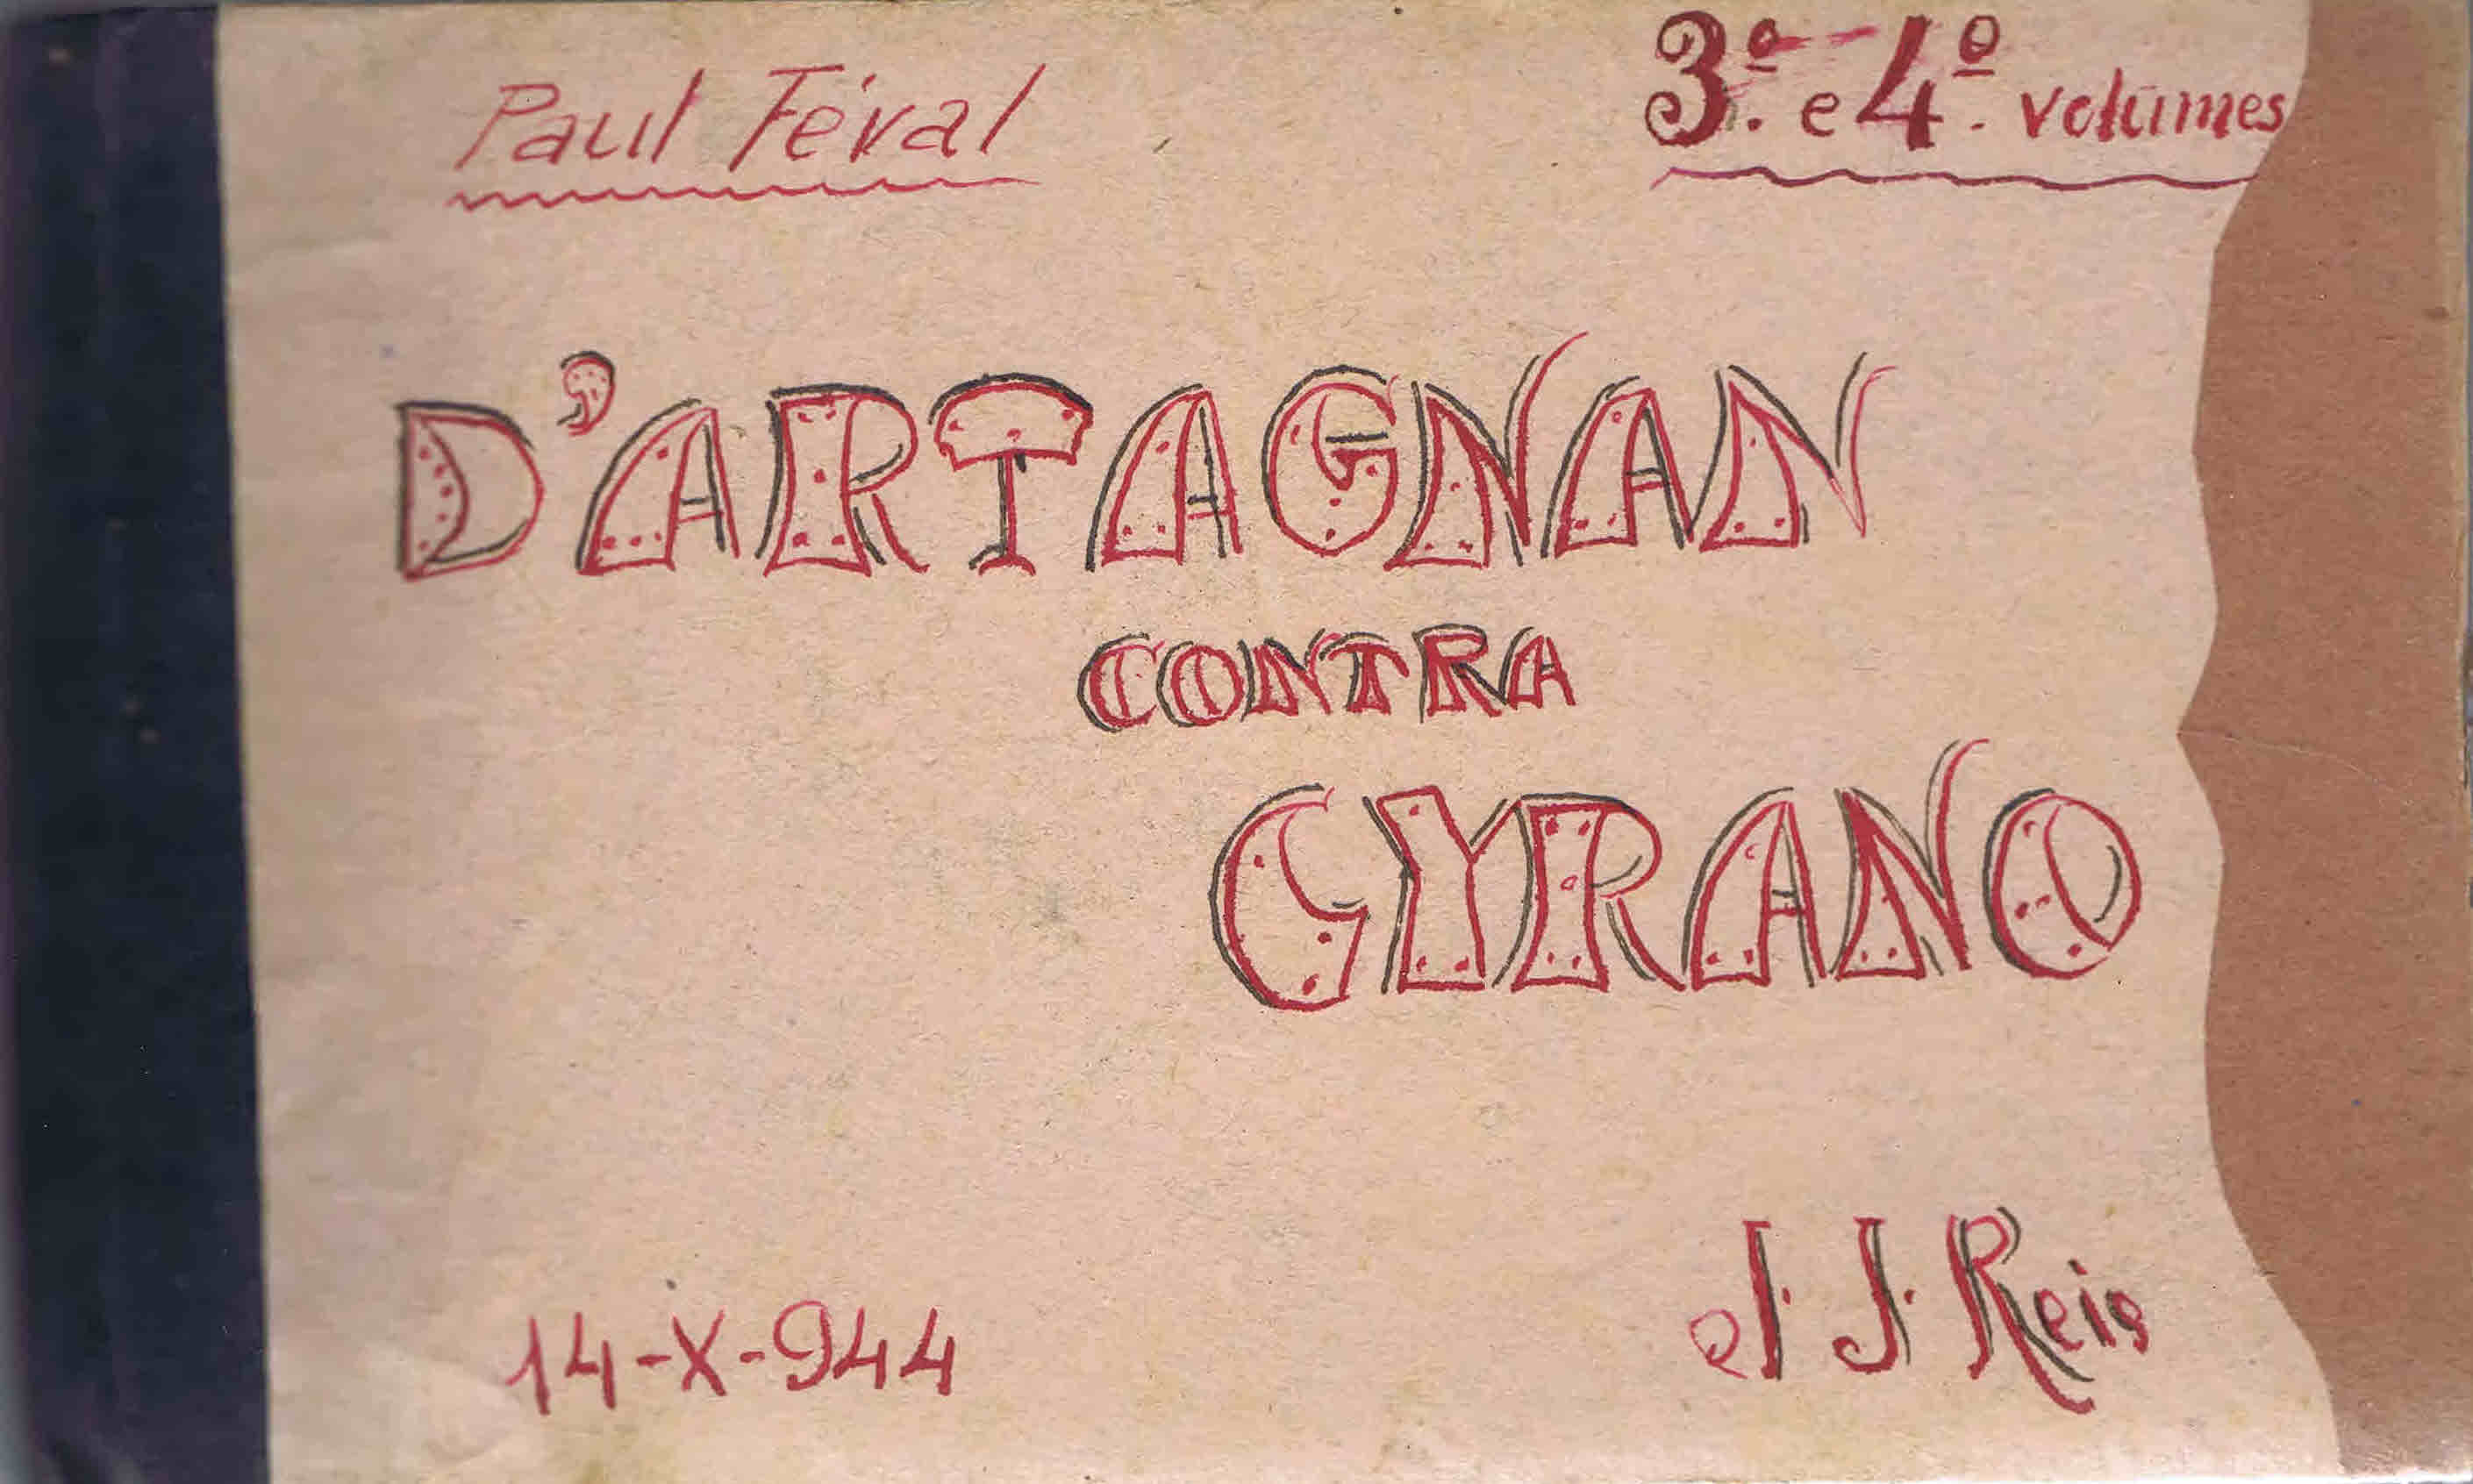 Paul Féval
3º. e 4º. volumes
D'ARTAGNAN
CONTRA
CYRANO
14-X-944
J. J. Reis